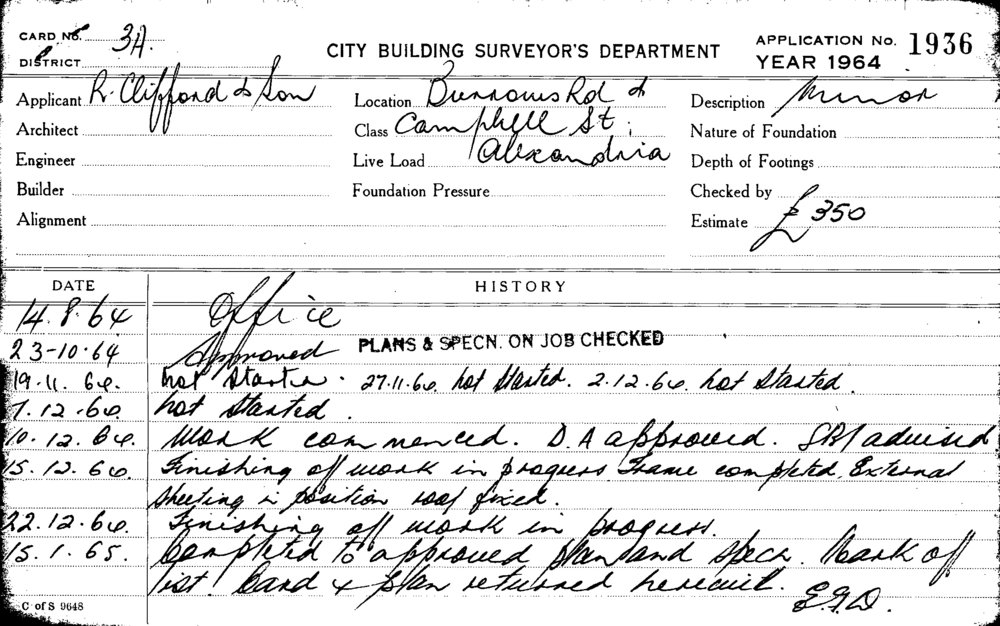 CARD No. 3A.
DISTRICT
CITY BUILDING SURVEYOR'S DEPARTMENT
APPLICATION No. 1936
YEAR 1964
Applicant R. Clifford & Son
Location Burrows Rd &
Description Minor
Architect
Class Campbell St,
Nature of Foundation
Engineer
Live Load Alexandria
Depth of Footings
Builder
Foundation Pressure
Checked by
Alignment
Estimate £350
DATE HISTORY
14.8.64 Office
23-10-64 Approved PLANS & SPECN. ON JOB CHECKED
19.11.64. Not Started. 27.11.64. Not Started. 2.12.64. Not Started.
7.12.64. Not Started.
10.12.64. Work commenced. D.A approved. advised
15.12.64. Finishing off work in progress Frame completed. External
sheeting in position roof fixed.
22.12.64. Finishing off work in progress.
15.1.65. Completed to approved plan and specn. Mark off
list. Card & plan returned herewith.
C of S 9648